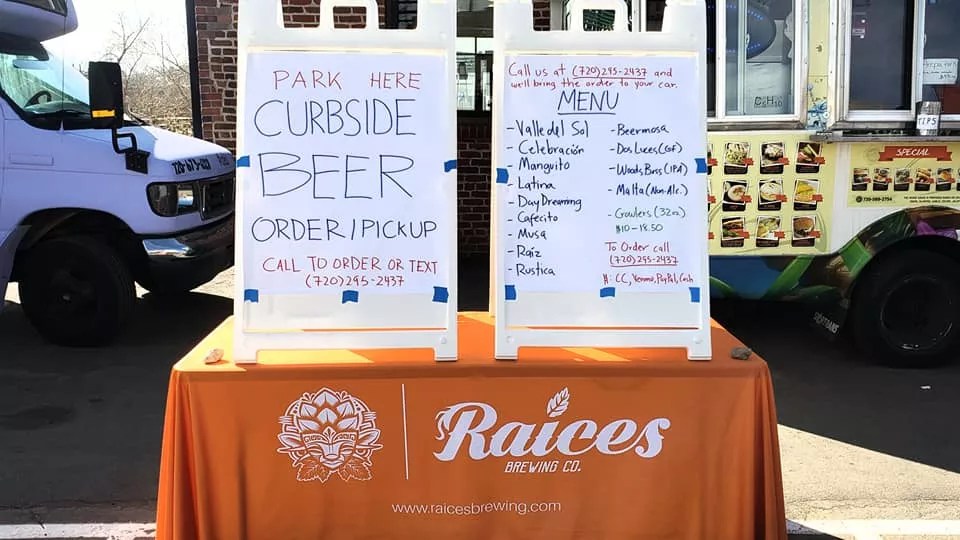 PARK HERE
CURBSIDE
BEER
ORDER / PICKUP
CALL TO ORDER OR TEXT
(720)295-2437
Call us at (720)295-2437 and
we'll bring the order to your car.
MENU
- Valle del Sol
- Celebración
- Manguito
- Latina
- Day Dreaming
- Cafecito
- Musa
- Raíz
- Rustica
- Beermosa
- Dos Luces (GF)
- Woods Boss (IPA)
- Malta (Non-Alc.)
- Crowlers (32oz)
$10 - 18.50
To Order call
(720)295-2437
#: CC, Venmo, PayPal, Cash
TIPS
SPECIAL
Raices
BREWING CO.
www.raicesbrewing.com